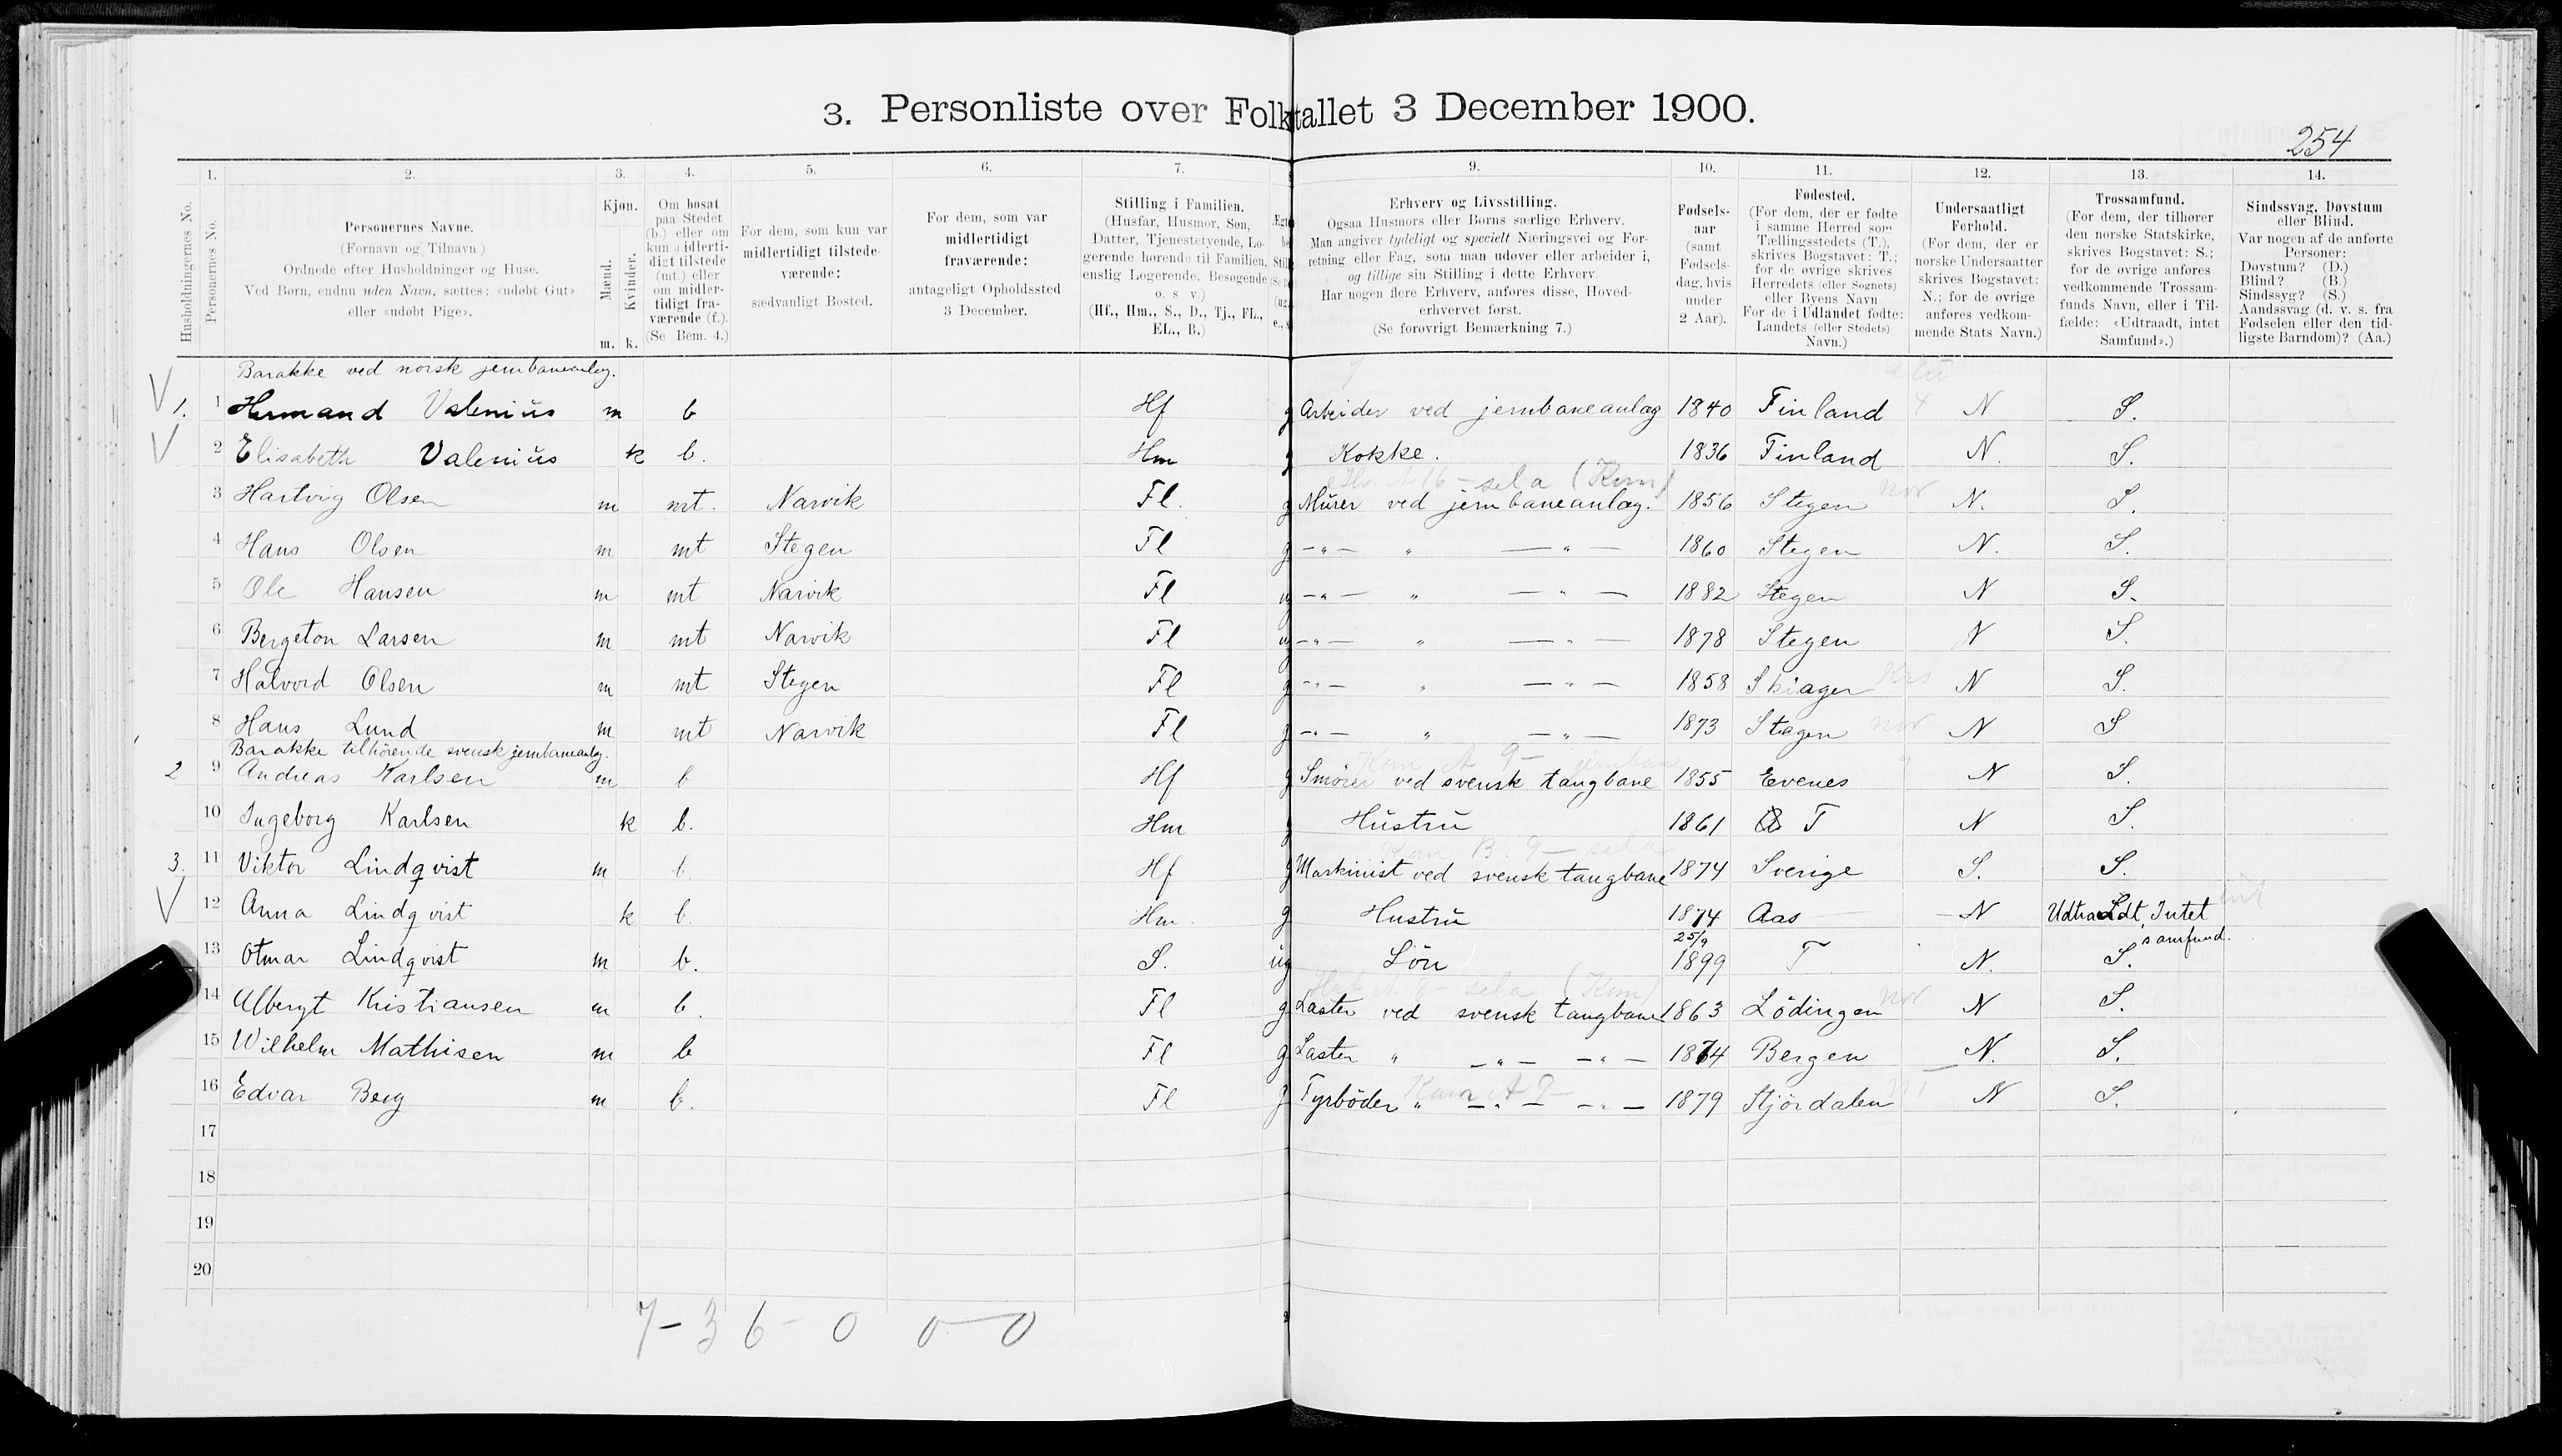 3. Personliste over Folketallet 3 December 1900.
254
1. 2. 3. 4. 5. 6. 7. 9. 10. 11. 12. 13. 14.
Husholdningernes No.
Personernes No.
Personernes Navne.
(Fornavn og Tilnavn)
Ordnede efter Husholdninger og Huse.
Ved Børn, endnu uden Navn, sættes: «udøbt Gut»
eller «udøbt Pige».
Kjøn.
Mænd.
Kvinder.
m. k.
Om bosat
paa Stedet
(b.) eller om
kun midlerti-
digt tilstede
(mt.) eller
om midler-
tidigt fra-
værende (f.).
(Se Bem. 4.)
For dem, som kun var
midlertidigt tilstede-
værende:
sædvanligt Bosted.
For dem, som var
midlertidigt
fraværende:
antageligt Opholdssted
3 December.
Stilling i Familien.
(Husfar, Husmor, Søn,
Datter, Tjenestetyende, Lo-
gerende hørende til Familien,
enslig Logerende, Besøgende
o. s. v.)
(Hf., Hm., S., D., Tj., FL.,
EL., B.)
Erhverv og Livsstilling.
Ogsaa Husmors eller Børns særlige Erhverv.
Man angiver tydeligt og specielt Næringsvei og For-
retning eller Fag, som man udøver eller arbeider i,
og tillige sin Stilling i dette Erhverv.
Har nogen flere Erhverv, anføres disse, Hoved-
erhvervet først.
(Se forøvrigt Bemærkning 7.)
Fødsels-
aar
(samt
Fødsels-
dag, hvis
under
2 Aar).
Fødested.
(For dem, der er fødte
i samme Herred som
Tællingsstedets (T.),
skrives Bogstavet: T.;
for de øvrige skrives
Herredets (eller Sognets)
eller Byens Navn
For de i Udlandet fødte:
Landets (eller Stedets)
Navn.)
Undersaatligt
Forhold.
(For dem, der er
norske Undersaatter
skrives Bogstavet:
N.; for de øvrige
anføres vedkom-
mende Stats Navn.)
Trossamfund.
(For dem, der tilhører
den norske Statskirke,
skrives Bogstavet: S.;
for de øvrige anføres
vedkommende Trossam-
funds Navn, eller i Til-
fælde: «Udtraadt, intet
Samfund».)
Sindssvag, Døvstum
eller Blind.
Var nogen af de anførte
Personer:
Døvstum? (D.)
Blind? (B.)
Sindssyg? (S.)
Aandssvag (d. v. s. fra
Fødselen eller den tid-
ligste Barndom)? (Aa.)
Barakke ved norsk jernbaneanlæg.
1. 1 Hermand Valenius m b Hf g Arbeider ved jernbaneanlæg 1840 Finland N S.
2 Elisabeth Valenius k b. Hm g Kokke. 1836 Finland N. S.
3 Hartvig Olsen m mt. Narvik Fl. g Murer ved jernbaneanlæg. 1856 Stegen N. S.
4 Hans Olsen m mt Stegen Fl g -„- „ -„- 1860 Stegen N. S.
5 Ole Hansen m mt Narvik Fl ug -„- „ -„- 1882 Stegen N S.
6 Bergeton Larsen m mt Narvik Fl ug -„- „ -„- 1878 Stegen N S.
7 Halvord Olsen m mt Stegen Fl g -„- „ -„- 1858 Skiager N S.
8 Hans Lund m mt Narvik Fl g -„- „ -„- 1873 Stegen N S
Barakke tilhørende svensk jernbaneanlæg.
2 9 Andreas Karlsen m b Hf g Smører ved svensk tangbane 1855 Evenes N S.
10 Ingeborg Karlsen k b. Hm g Hustru 1861 T N S.
3. 11 Viktor Lindqvist m b. Hf g Maskinist ved svensk tangbane 1874 Sverige S. S.
12 Anna Lindqvist k b. Hm. g Hustru 1874 Aas N Udtraadt, Intet
samfund.
13 Otmar Lindqvist m b. S. ug Sön 25/9 1899 T N. S.
14 Albergt Kristiansen m b. Fl g Laster ved svensk tangbane 1863 Lödingen N S.
15 Wilhelm Mathisen m b Fl g Laster „ -„- -„- 1874 Bergen N. S.
16 Edvar Berg m b. Fl g Fyrböder „ -„- -„- 1879 Stjördalen N S.
17
18
19
20
7-3 6- 0 0-0